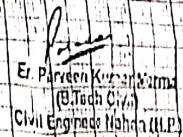 Er. Parveen Kumar Verma
(B.Tech Civil)
Civil Engineer Nahan (H.P.)